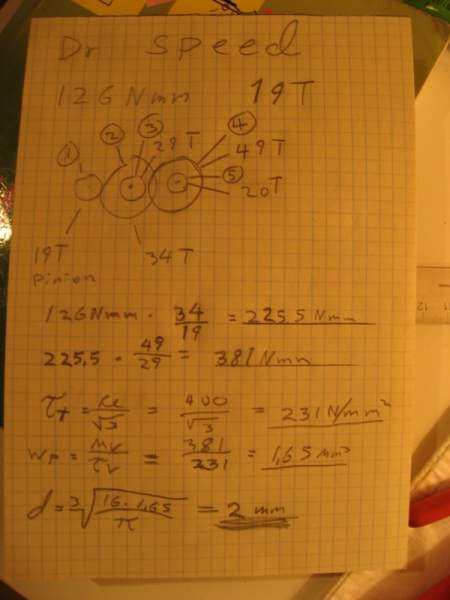 Dr speed
126 Nmm 19T
① ② ③ ④
29T
49T
⑤
20T
19T 34T
pinion
126Nmm · 34/19 = 225,5 Nmm
225,5 · 49/29 = 381 Nmm
τ = Re/√3 = 400/√3 = 231 N/mm²
Wp = Mv/τv = 381/231 = 1,65 mm³
d = ³√(16 · 1,65/π) = 2 mm